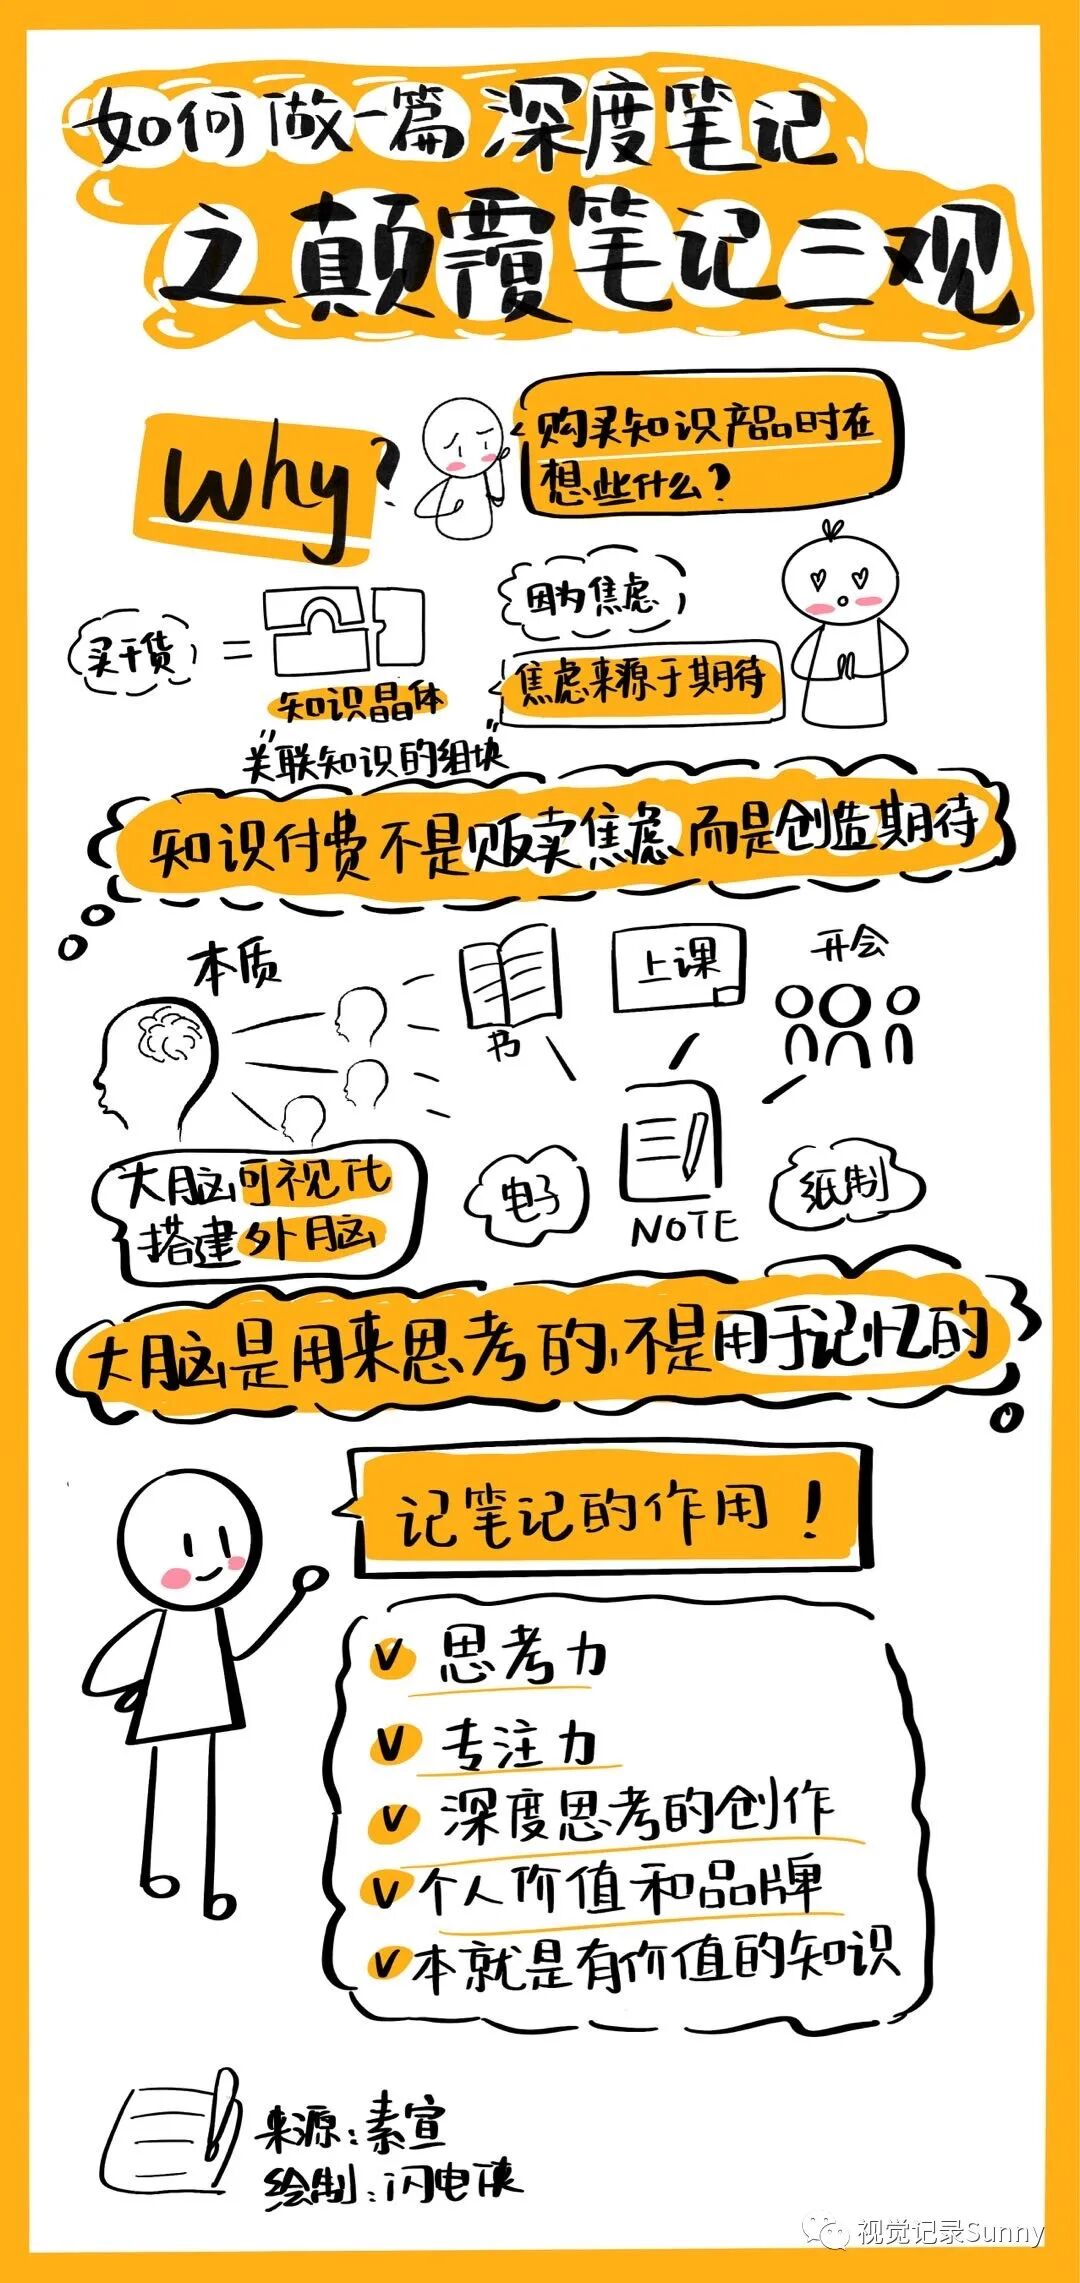 如何做一篇深度笔记
之颠覆笔记三观
Why?
购买知识产品时在
想些什么?
买干货
=
知识晶体
"关联知识的组块"
因为焦虑
焦虑来源于期待
知识付费不是贩卖焦虑而是创造期待
本质
书
上课
开会
大脑可视化
搭建外脑
电子
NOTE
纸制
大脑是用来思考的,不是用于记忆的
记笔记的作用!
思考力
专注力
深度思考的创作
个人价值和品牌
本就是有价值的知识
来源:素宣
绘制:闪电侠
视觉记录Sunny